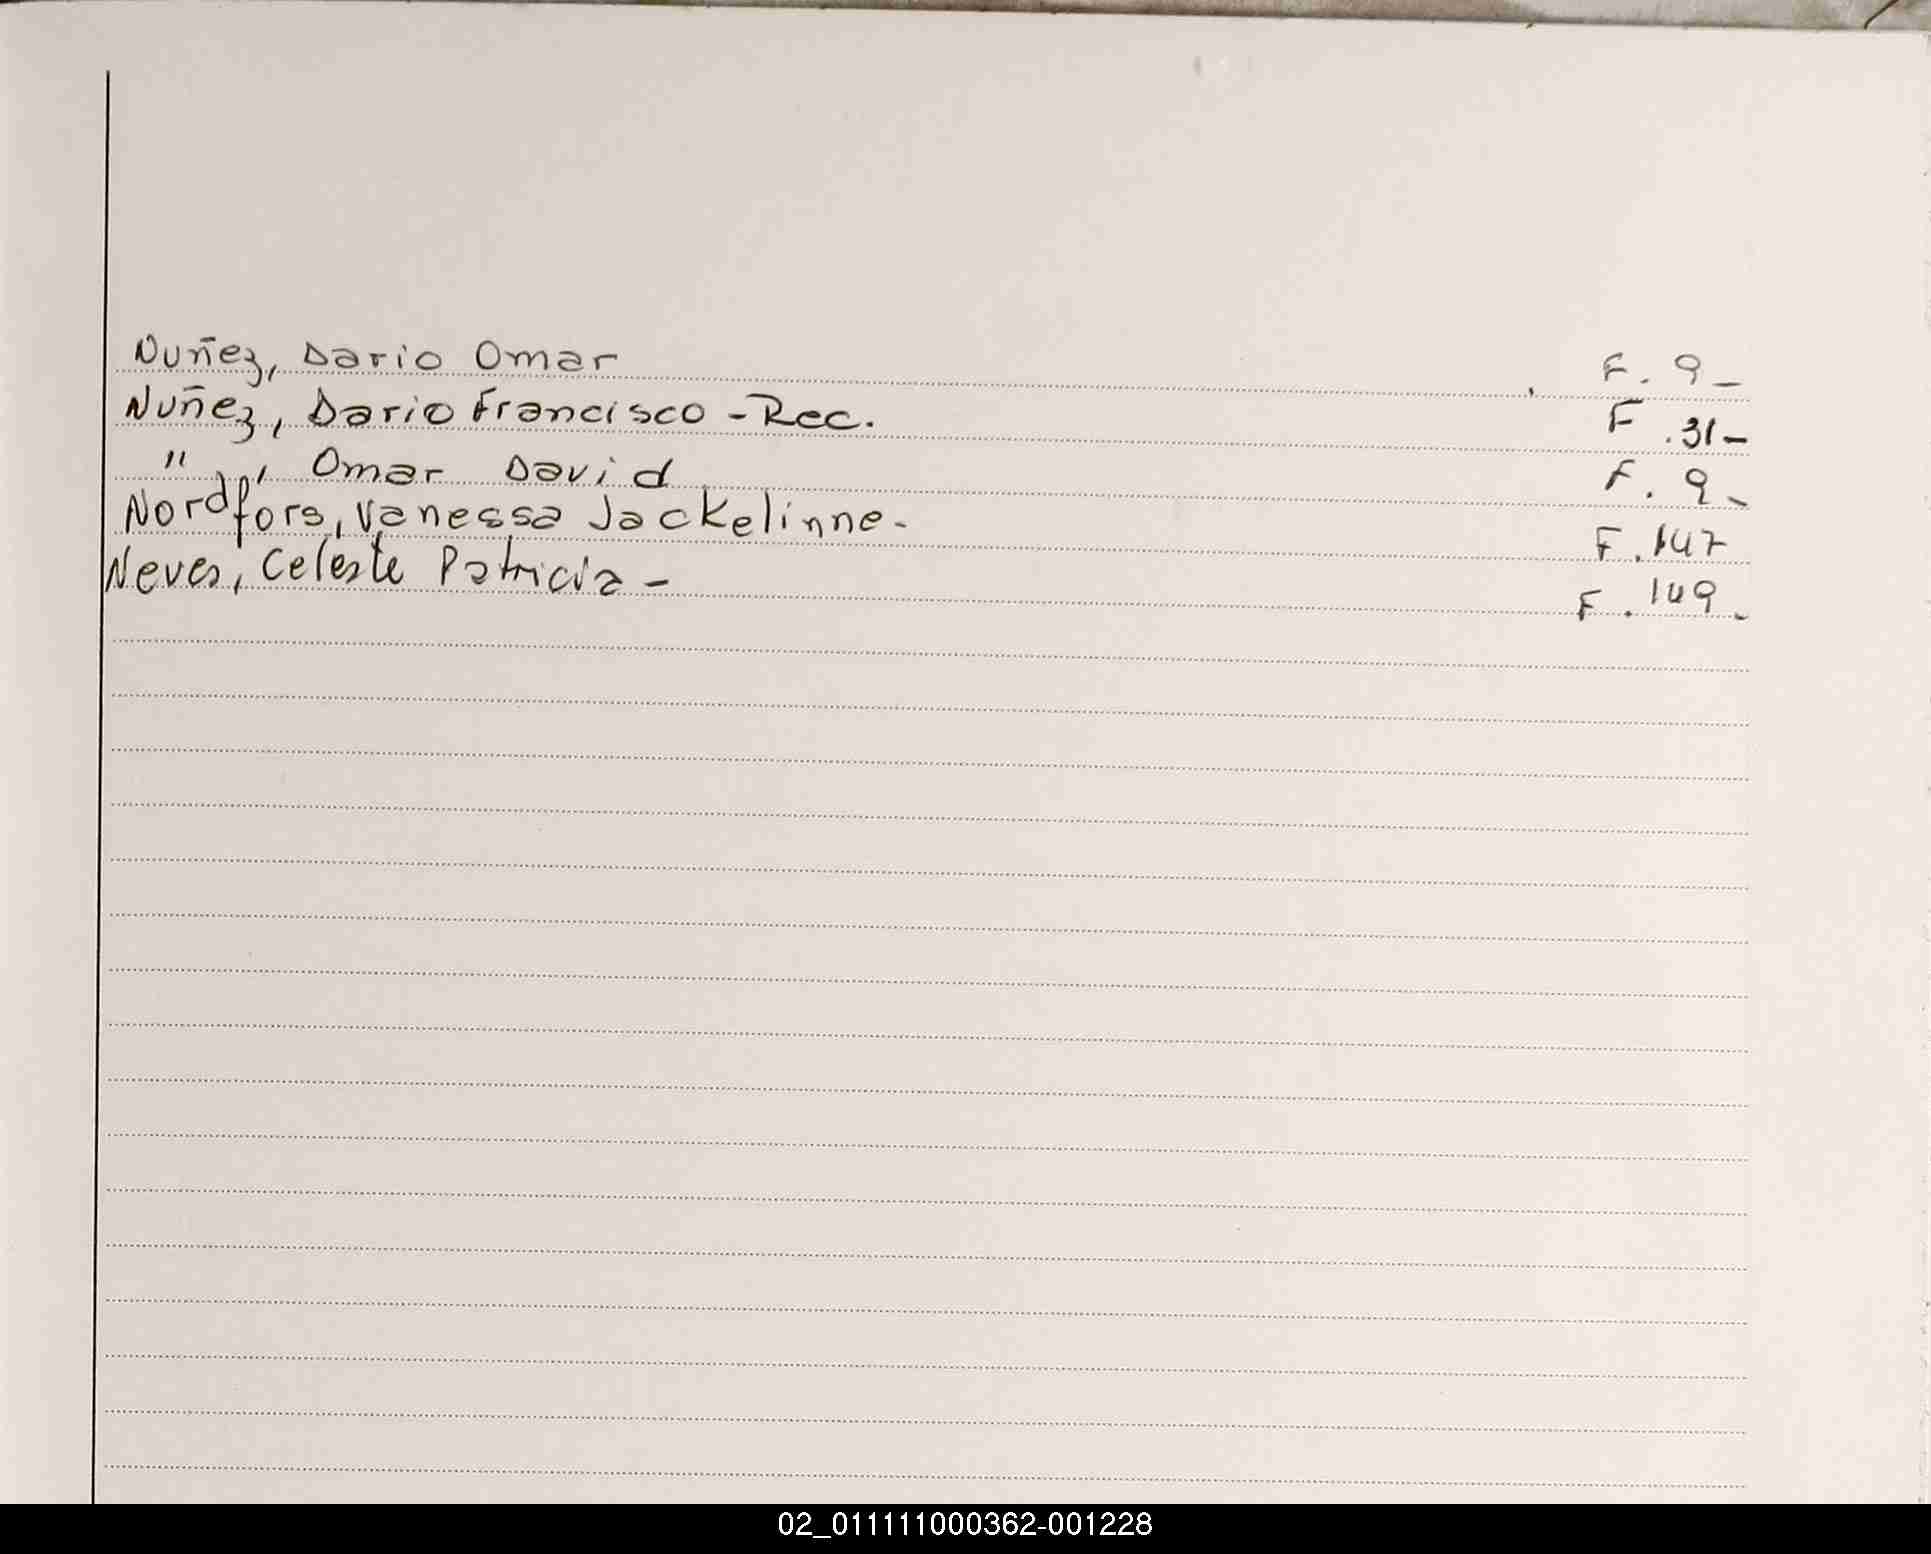 Nuñez, Dario Omar F. 9-
Nuñez, Dario Francisco - Rec. F. 31-
" , Omar David F. 9-
Nordfors, Vanessa Jackelinne- F. 147
Neves, Celeste Patricia - F. 149-
02_011111000362-001228